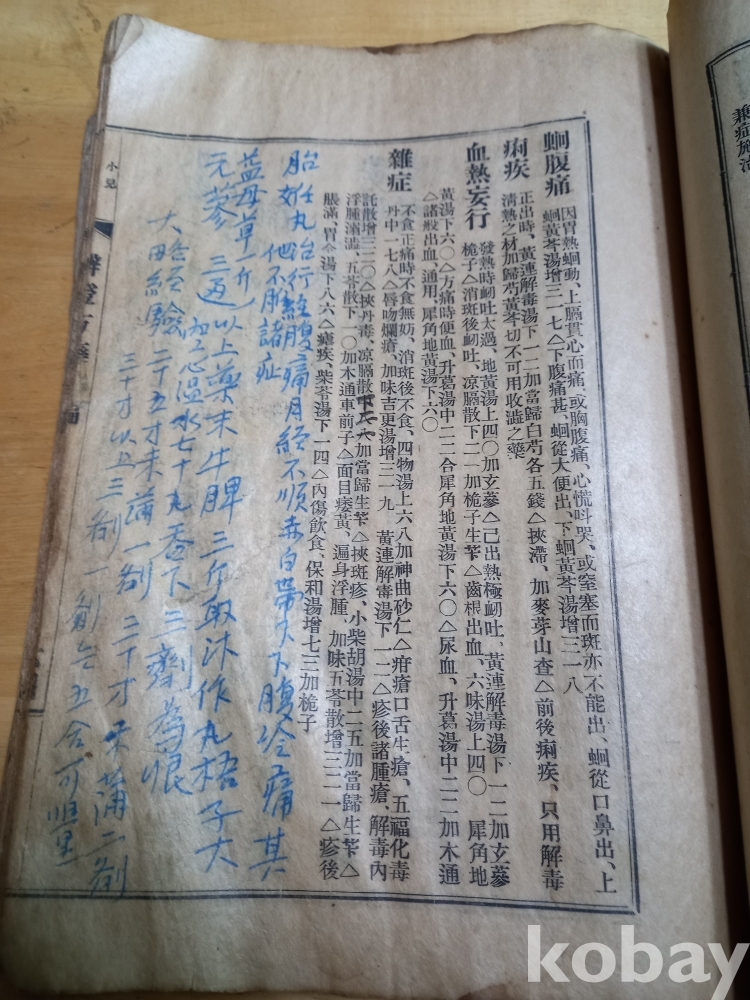 兼症施治
蛔腹痛
因胃熱蛔動、上膈貫心而痛、或胸腹痛、心慌叫哭、或窒塞而斑亦不能出、蛔從口鼻出、上
蛔黃芩湯增三一七△下腹痛甚、蛔從大便出、下蛔黃芩湯增三一八
痢疾
正出時、黃連解毒湯下一二加當歸白芍各五錢△挾滯、加麥芽山查△前後痢疾、只用解毒
清熱之材加歸芍黃芩切不可用收澁之藥
血熱妄行
發熱時衂吐太過、地黃湯上四〇加玄蔘△已出熱極衂吐、黃連解毒湯下一二加玄蔘
梔子△消斑後衂吐、凉膈散下二一加梔子生芐△齒根出血、六味湯上四〇 犀角地
黃湯下六〇△方痛時便血、升葛湯中二二合犀角地黃湯下六〇△尿血、升葛湯中二二加木通
△諸般出血、通用、犀角地黃湯下六〇
雜症
不食正痛時不食無妨、消斑後不食、四物湯上六八加神曲砂仁△疳瘡口舌生瘡、五福化毒
丹中一七八△唇吻爛瘡、加味吉更湯增三一九 黃連解毒湯下一二△疹後諸腫瘡、解毒內
託散增三二〇△挾丹毒、凉膈散下二一加當歸生芐△挾斑疹、小柴胡湯中二五加當歸生芐△
浮腫溺澁、五苓散下一〇加木通車前子△面目痿黃、遍身浮腫、加味五苓散增三二一△疹後
脹滿、胃令湯下八六△瘧疾、柴苓湯下一四△內傷飮食、保和湯增七三加梔子
胎妊丸治行經腹痛月經不順赤白帶下下腹冷痛其
他不胎諸症
益母草一斤
元蔘 三两 以上藥末牛脾三介取汁作丸梧子大
空心溫水七十丸吞下三劑爲限
大田經驗 二十五才未滿一劑 三十才未滿二劑
三十才以上三劑 一劑
小兒
kobay